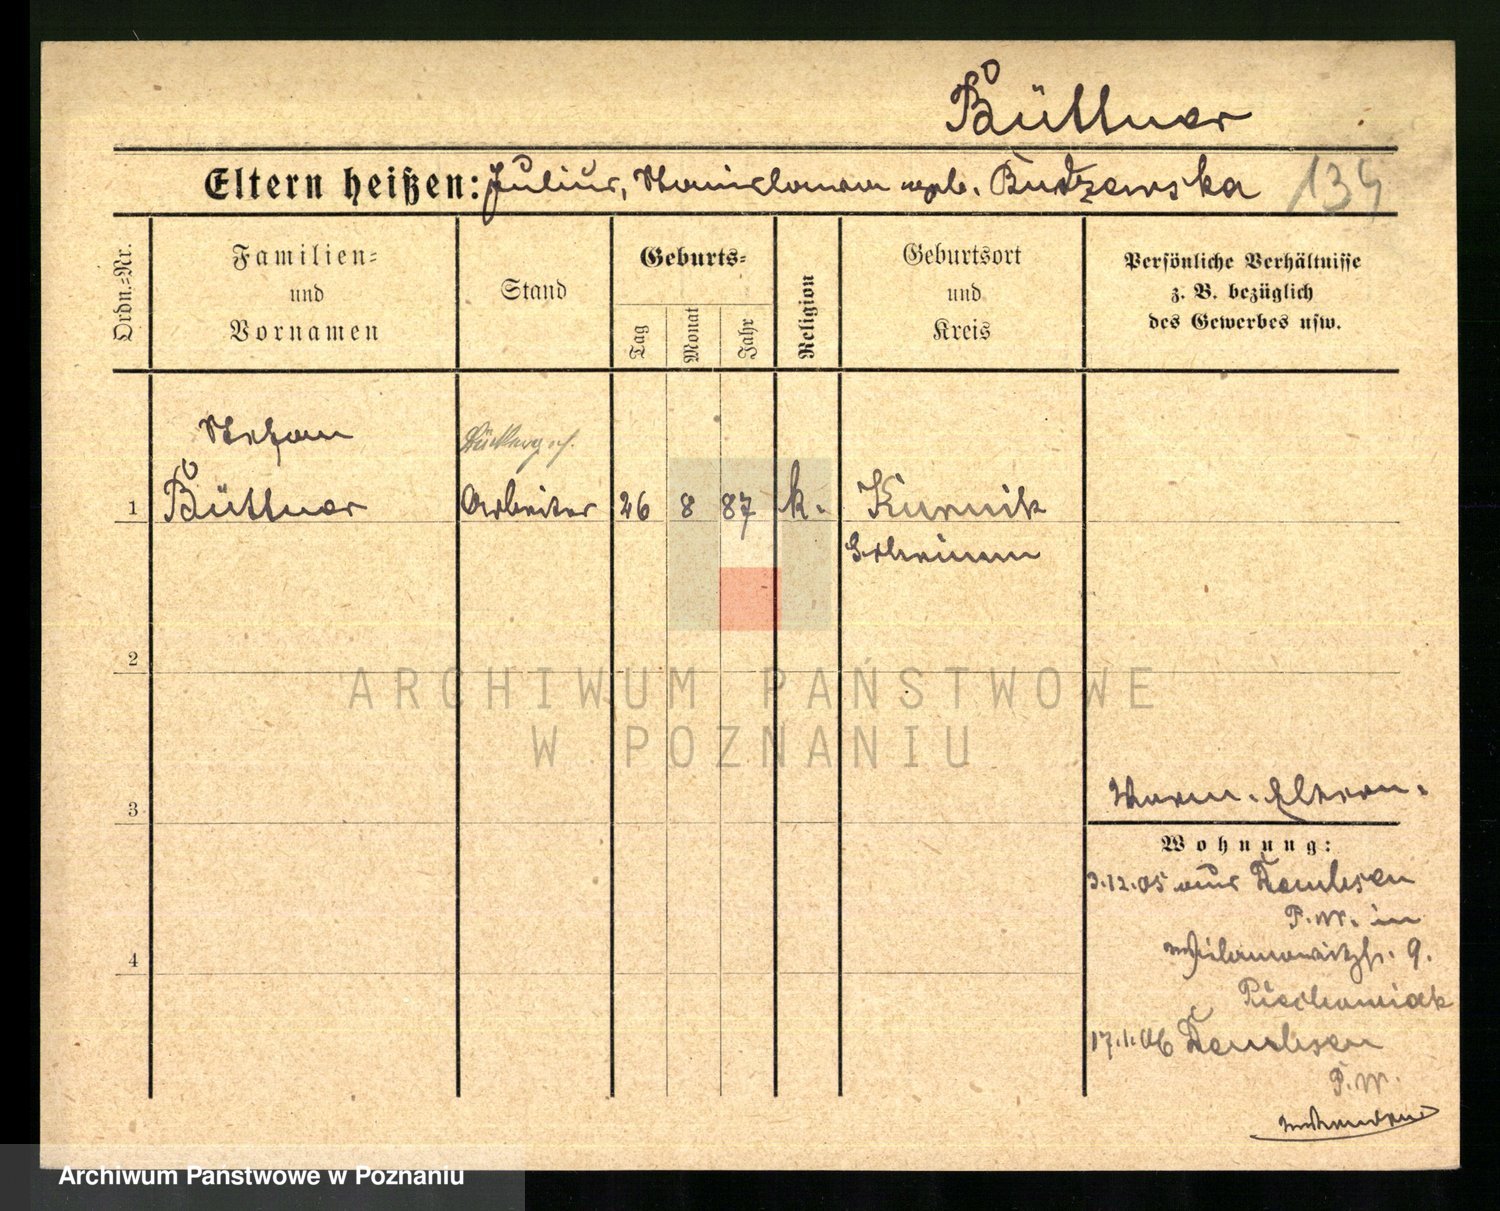 Büttner
Eltern heißen: Julius, Stanislawa geb. Budzewska 134
Ordn.-Nr.
Familien-
und
Vornamen
Stand
Geburts-
Tag
Monat
Jahr
Religion
Geburtsort
und
Kreis
Persönliche Verhältnisse
z. B. bezüglich
des Gewerbes usw.
Stefan
1 Büttner Arbeiter 26 8 87 k. Kurnik
Schrimm
2
3
Eltern.
Wohnung:
3.12.05 aus Dembsen
P. W. in
9.
Piechowiak
17.1.06 Dembsen
P. W.
4
ARCHIWUM PAŃSTWOWE
W POZNANIU
Archiwum Państwowe w Poznaniu